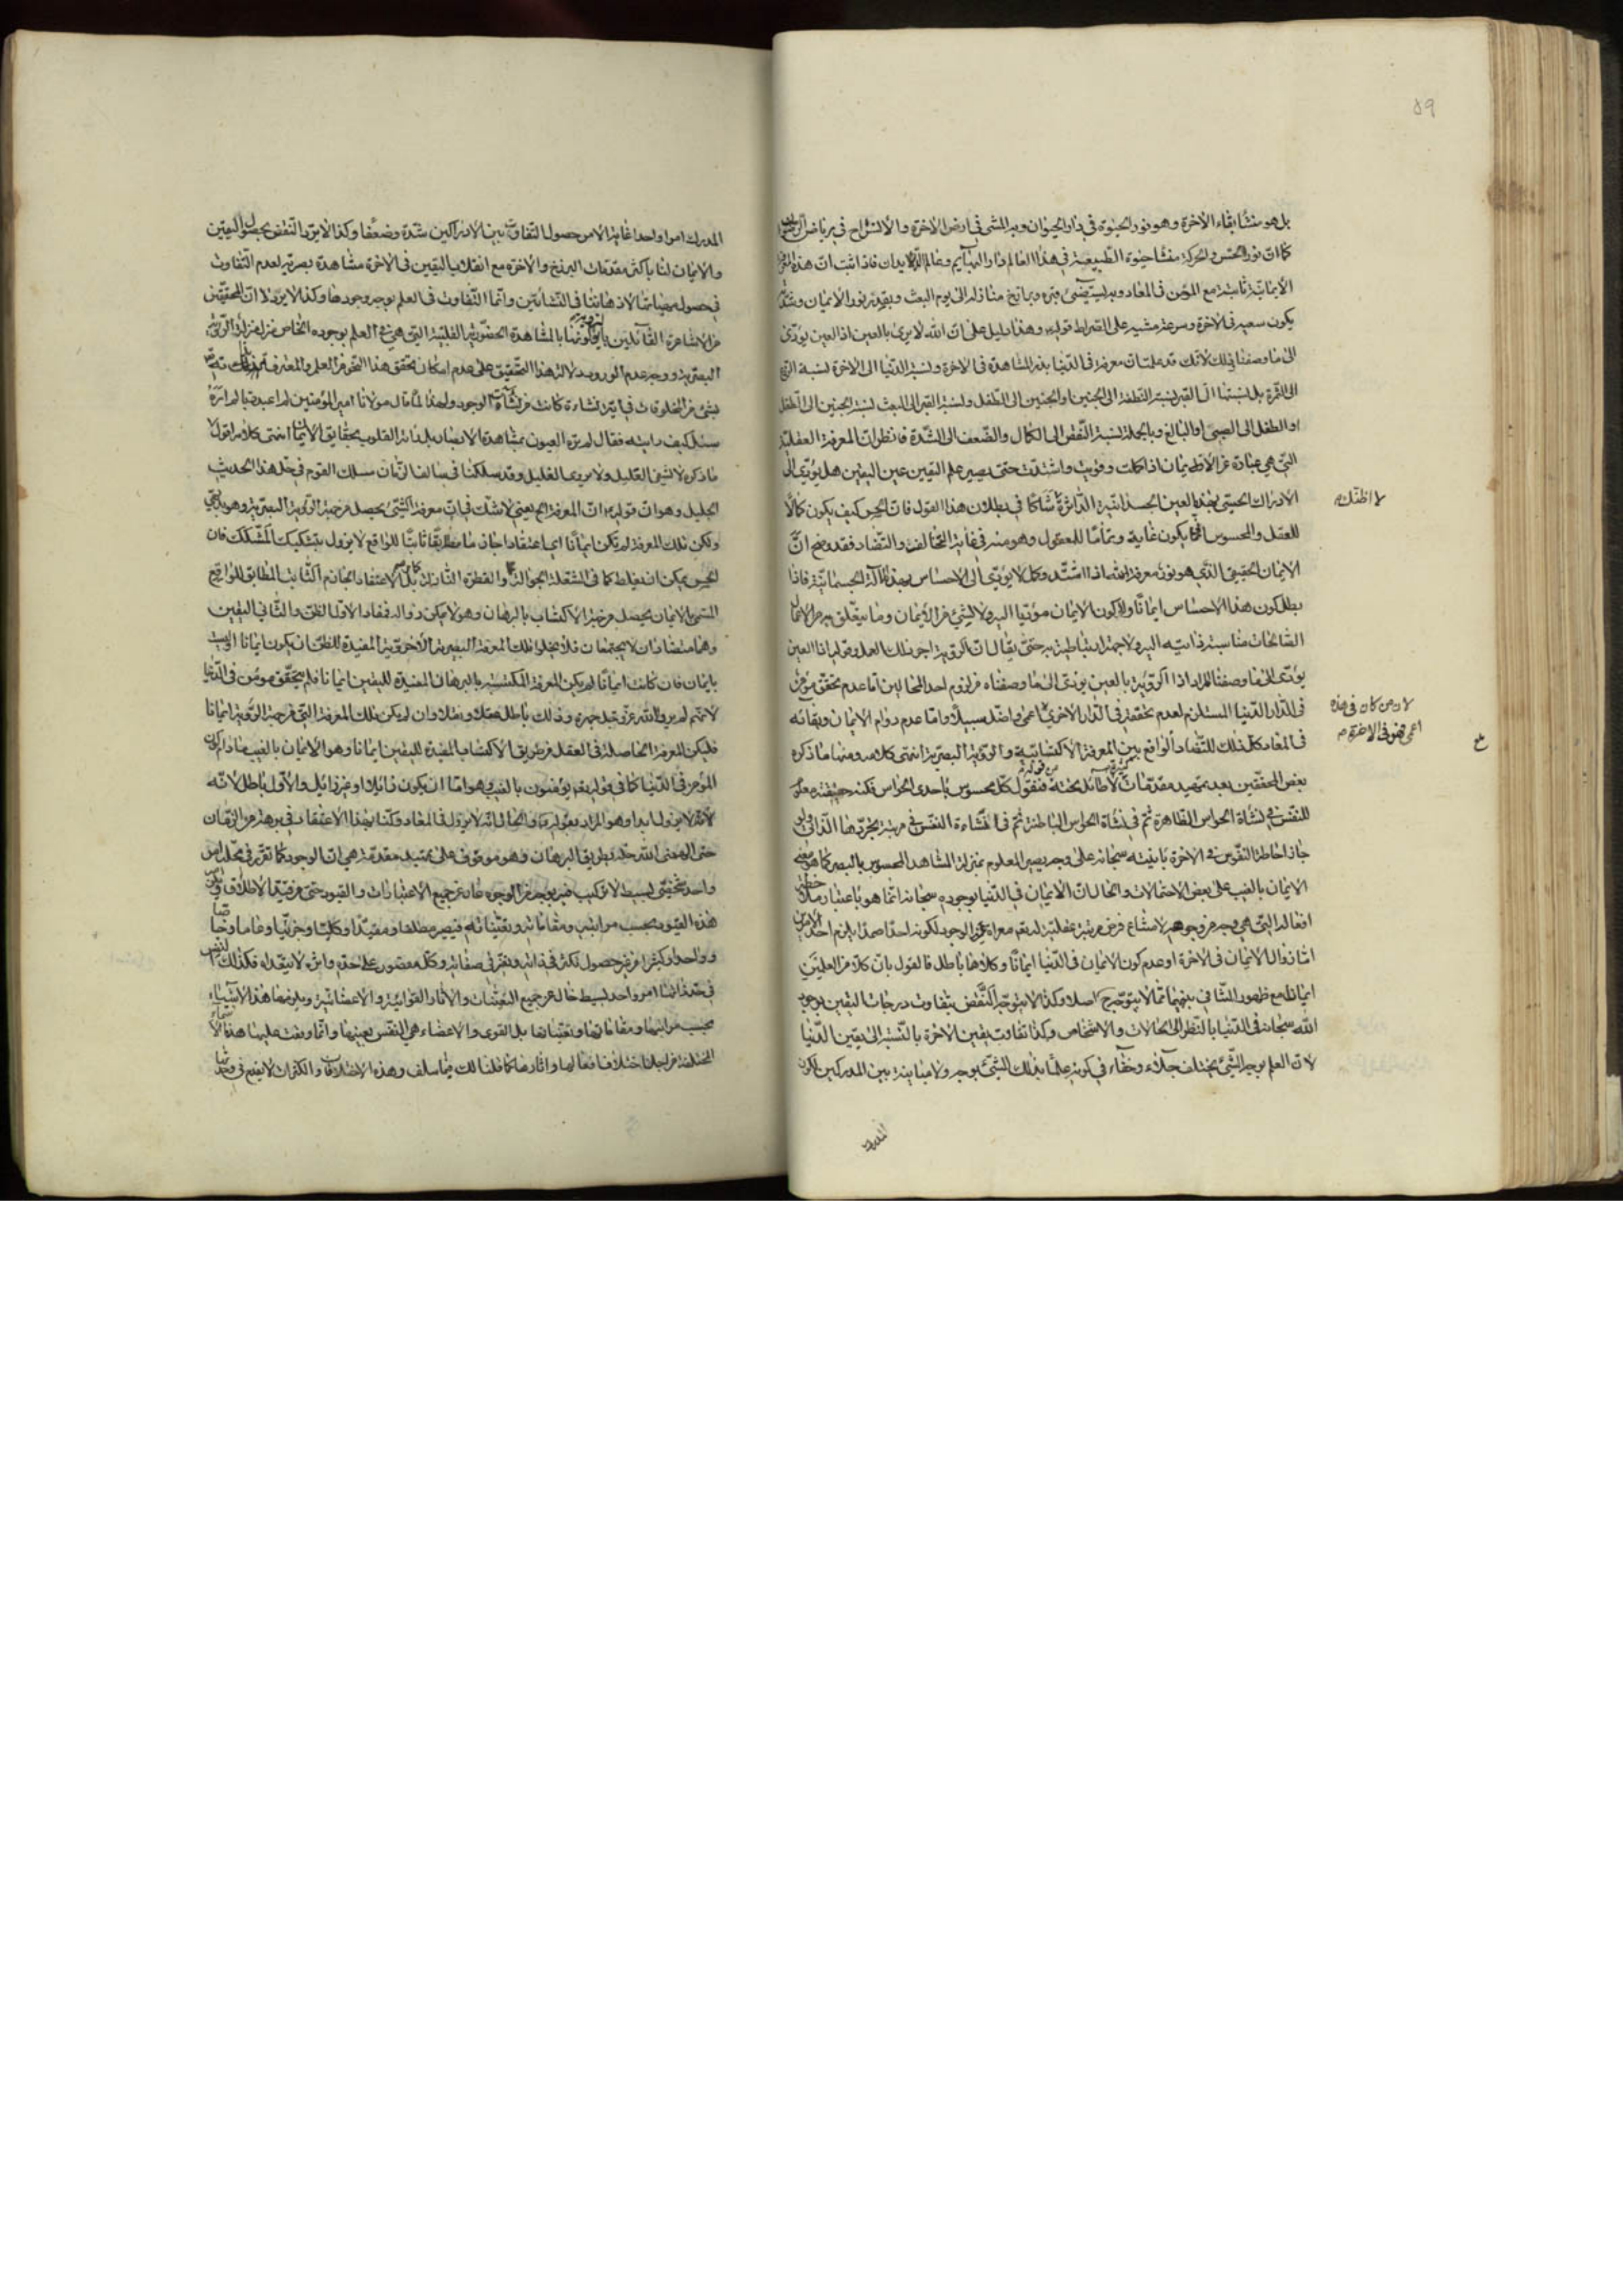 ٥٩
بل هو منشأ بقاء الآخرة وهو نور الحيوة في دار الحيوان وبه المشي في ارض الآخرة والانشراح في رياض
كما ان نور الحس والحركة منشأ حيوة الطبيعية في هذا العالم دار البهايم وعالم الابدان فاذا ثبت ان هذه
الايمانية ثابتة مع المؤمن في المعاد وبه يستضيئ قبره وبرازخ منازله الى يوم البعث وبقدر نور الايمان وشدته
يكون سعيه في الآخرة وسرعة مشيه على الصراط قوله وهذا دليل على ان الله لا يرى بالعين اذ العين يؤدي
الى ما وصفنا وذلك لانك قد علمت ان معرفة في الدنيا بذر المشاهدة في الآخرة ونسبة الدنيا الى الآخرة نسبة
الى الثمرة بل نسبتها الى القبر نسبة النطفة الى الجنين والجنين الى الطفل ونسبة القبر الى البعث نسبة الجنين الى الطفل
او الطفل الى الصبي او البالغ وبالجملة نسبة النقص الى الكمال والضعف الى الشدة فانظر ان المعرفة العقلية
التي هي عبارة عن الايمان اذا كملت وقويت واشتدت حتى يصير علم اليقين عين اليقين هل يؤدي الى
الادراك الحسي بهذه العين الجسدانية الداثرة شاكا في بطلان هذا القول فان الحس كيف يكون كمالا
لا اظنك
للعقل والمحسوس يكون غاية وتماما للمعقول وهو منه في غاية التخالف والتضاد فقد وضح ان
الايمان الحقيقي الذي هو نور معرفة الله اذا اشتد وكمل لا يؤدي الى الاحساس بهذه الآلة الجسمانية فاذا
بطل كون هذا الاحساس ايمانا ولا كون الايمان مؤديا اليه ولا لشيئ من الايمان وما يتعلق به من الاعمال
الصالحات مناسبة ذاتية اليه ولا جهة ارتباطية به حتى يقال ان الرؤية اجر ذلك العمل وقوله اذ العين
يؤدي الى ما وصفناه المراد اذ الرؤية بالعين يؤدي الى ما وصفناه من لزوم احد المحالين اما عدم تحقق مؤمن
في الدار الدنيا المستلزم لعدم تحققه في الدار الاخرى اعمى واضل سبيلا واما عدم دوام الايمان وبقائه
لان من كان في هذه
اعمى فهو في الآخرة
في المعاد كل ذلك للتضاد الواقع بين المعرفة الاكتسابية والرؤية البصرية انتهى كلامه ومنها ما ذكره
بعض المحققين بعد تمهيد مقدمات لا طائل تحته فنقول كل محسوس باحدى الحواس فكنه حقيقته معلوم
للنفس في نشأة الحواس الظاهرة ثم في نشأة الحواس الباطنة ثم في النشاءة النفس في مرتبة تجردها الذاتي
جاز احاطة النفوس في الآخرة سبحانه على وجه يصير المعلوم بمنزلة المشاهد المحسوس بالبصر كما هو
الايمان بالغيب على بعض الاحتمالات والحال ان الايمان في الدنيا بوجوده سبحانه انما هو باعتبار
افعاله التي هي وجه من وجوهه لامتناع فرض مرتبة عقلية له تعالى معراة عن الوجود لكونه احدا صمدا يلزم احد الامرين
اما زوال الايمان في الآخرة او عدم كون الايمان في الدنيا ايمانا وكلاهما باطل فالقول بان كلا من العلمين
ايمانا مع ظهور التنافي بينهما مما لا يتوجه اصلا وكذا لا يتوجه النقض بتفاوت درجات اليقين بوجود
الله سبحانه في الدنيا بالنظر الى الحالات والاشخاص وكذا تفاوت يقين الآخرة بالنسبة الى يقين الدنيا
لان العلم بوجه الشيئ يختلف جلاء وخفاء في كونه علما بذلك الشيئ بوجه ولا مباينة بين المدركين لكون
المدرك
المدرك امرا واحدا غاية الامر حصول التفاوت بين الادراكين شدة وضعفا وكذا لا يرد النقض بحصول اليقين
والايمان لنا باكثر مقدمات البرزخ والآخرة مع انقلاب اليقين في الآخرة مشاهدة بصرية لعدم التفاوت
في حصول مهياتها لاذهاننا في النشأتين وانما التفاوت في العلم بوجه وجودها وكذا لا يرد لان المحققين
من الاشاعرة القائلين بالمشاهدة الحضورية القلبية التي هي العلم بوجوده الخاص منزلة الرؤية
البصرية ووجه عدم الورود دلالة هذا التحقيق على عدم امكان تحقق هذا النحو من العلم والمعرفة
بشيئ من المخلوقات في اية نشاءة كانت من نشأت الوجود ولهذا لما قال مولانا امير المؤمنين لم اعبد ربا لم اره
سئل كيف رايته فقال لم تره العيون بمشاهدة الابصار بل رأته القلوب بحقايق الايمان انتهى كلامه اقول
ما ذكره لا يشفي العليل ولا يروي الغليل وقد سلكنا في سالف الزمان مسلك القوم في حل هذا الحديث
الجليل وهو ان قوله ان المعرفة الخ يعني لا شك في ان معرفة الشيئ يحصل من جهة الرؤية البصرية وهو بديهي
ولكن تلك المعرفة لم تكن ايمانا اي اعتقادا جازما مطابقا ثابتا للواقع لا يزول بتشكيك المشكك فان
الحس يمكن ان يغلط كما في الشعلة الجوالة والقطرة النازلة بل الاعتقاد الجازم الثابت المطابق للواقع
المسمى بالايمان يحصل من جهة الاكتساب بالبرهان وهو لا يمكن زواله فمفاد الاول الظن والثاني اليقين
وهما متضادان لا يجتمعان فلا يخلو تلك المعرفة البصرية الاخروية المفيدة للظن ان يكون ايمانا او ليست
بايمان فان كانت ايمانا لم يكن المعرفة المكتسبة بالبرهان المفيدة لليقين ايمانا فلم يتحقق مؤمن في الدنيا
لانهم لم يروا الله عز وجل جهرة وذلك باطل عقلا ونقلا وان لم يكن تلك المعرفة التي من جهة الرؤية ايمانا
فليكن المعرفة الحاصلة في العقل من طريق الاكتساب المفيدة لليقين ايمانا وهو الايمان بالغيب ما دام
المؤمن في الدنيا كما في قوله تعالى يؤمنون بالغيب هو اما ان يكون زائلا او غير زائل والاول باطل لانه
لا يزول ابدا وهو المراد بقوله والحال انه لا يزول في المعاد وكنا بهذا الاعتقاد في برهة من الزمان
حتى الهمني الله حله بطريق البرهان وهو موقوف على تمهيد مقدمة هي ان الوجود كما تقرر في محله امر
واحد شخصي بسيط لا تركيب فيه بوجه من الوجوه عار عن جميع الاعتبارات والقيود حتى من قيد الاطلاق
هذه القيود بحسب مراتبه ومقاماته وتعيناته فيصير مطلقا ومقيدا وكليا وجزئيا وعاما وخاصا
وواحدا وكثيرا من غير حصول تكثر في ذاته وتغير في صفاته وكل مقصور على حده واثره لا يتعداه فكذلك النفس
في حد ذاتها امر واحد بسيط خال عن جميع التعينات والآثار القوائية والاعضائية ويلزمها هذه الاشياء
بحسب مراتبها ومقاماتها وتعيناتها بل القوى والاعضاء هي النفس بعينها وانما وقعت عليها هذه الاسماء
المختلفة من اجل اختلاف افعالها وآثارها كما قلنا لك فيما سلف وهذه الاختلافات والكثرات لا يقدح في وحدتها